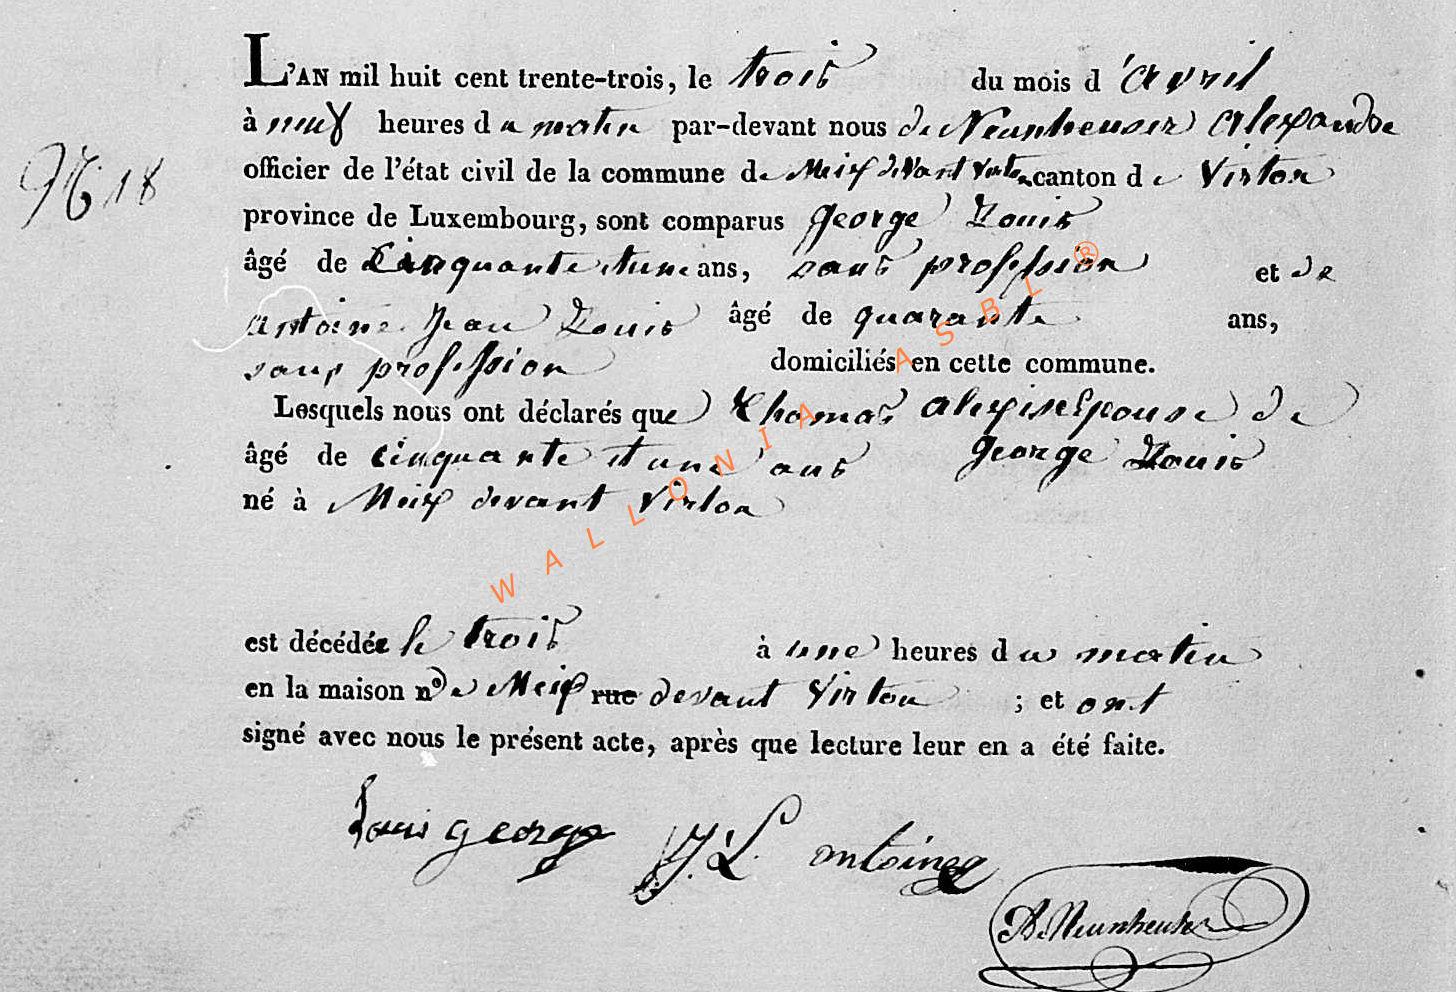 L'AN mil huit cent trente-trois, le trois du mois d'avril
à neuf heures du matin par-devant nous de Neunheuser Alexandre
N° 18
officier de l'état civil de la commune de Meix devant Virton canton de Virton
province de Luxembourg, sont comparus George Louis
âgé de Cinquante et une ans, sans profession et de
antoine Jean Louis âgé de quarante ans,
sans profession domiciliés en cette commune.
Lesquels nous ont déclarés que Thomas alexise Epouse de
âgé de cinquante et une ans George Louis
né à Meix devant Virton
est décédée le trois à une heures du matin
en la maison n° de Meix rue devant Virton ; et ont
signé avec nous le présent acte, après que lecture leur en a été faite.
Louis george J. L. antoine
A de Neunheuser
WALLONIA ASBL ®